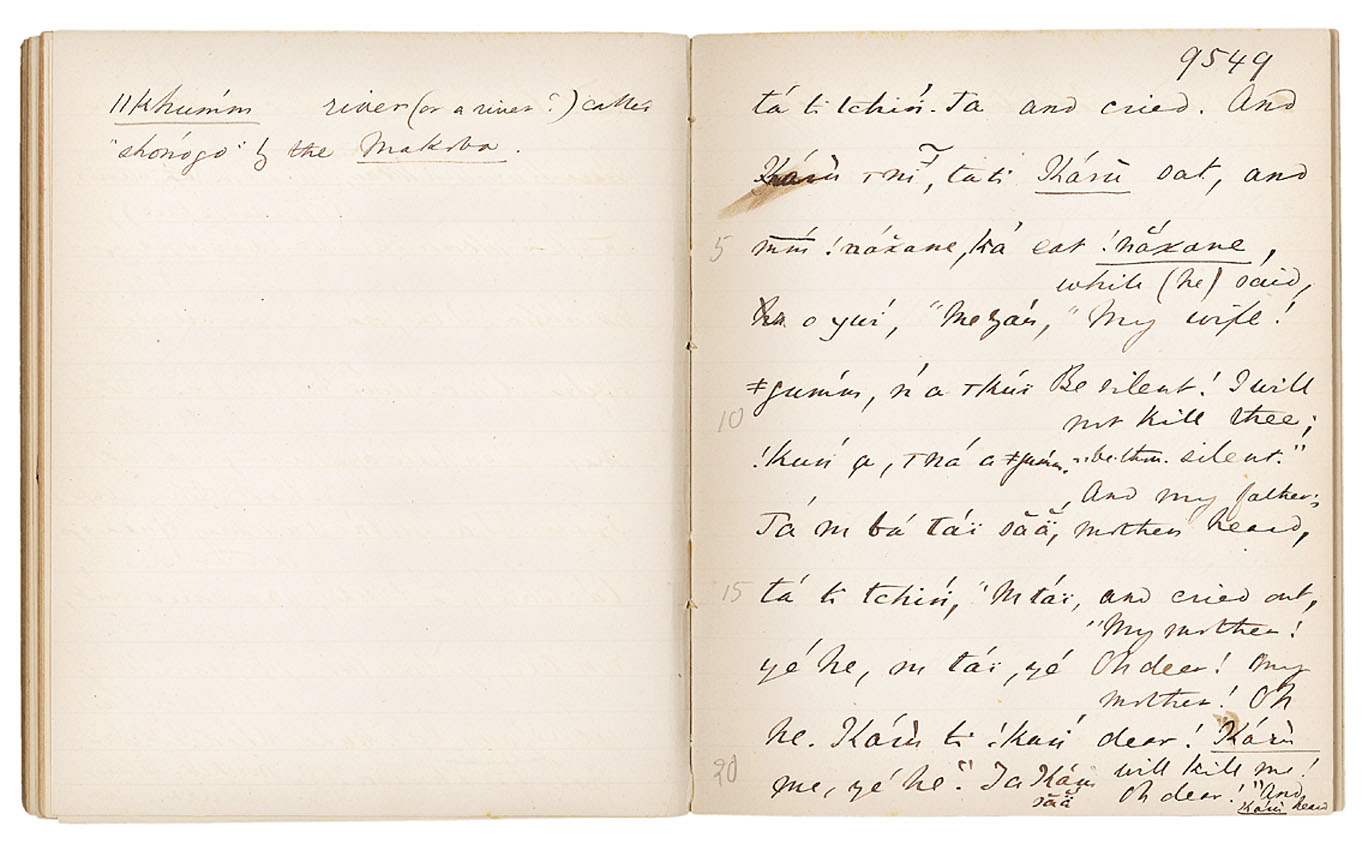 ǁkhumḿ river (or a river?) called
"shóngo" by the Makoba.
9549
tá ti tchiń. Ta and cried. And
Káru ta ti Káru sat, and
5 mḿ !náxane, ká eat !náxane,
while (he) said,
o ywí, "Me My wife!
10 ǂgumḿ, ń a Be silent! I will
not kill thee;
!kuń a, ná a ǂgumḿ." be thou silent."
And my father's
Tá m bá táï sāä, mother heard,
15 tá ti tchiń, "M táï, and cried out,
"My mother!
yé he, m táï, yé Oh dear! My
mother! Oh
he. Káru ti !kuń dear! Káru
20 me, yé he." Ta Káru will kill me!
sāä Oh dear!" And
Káru heard